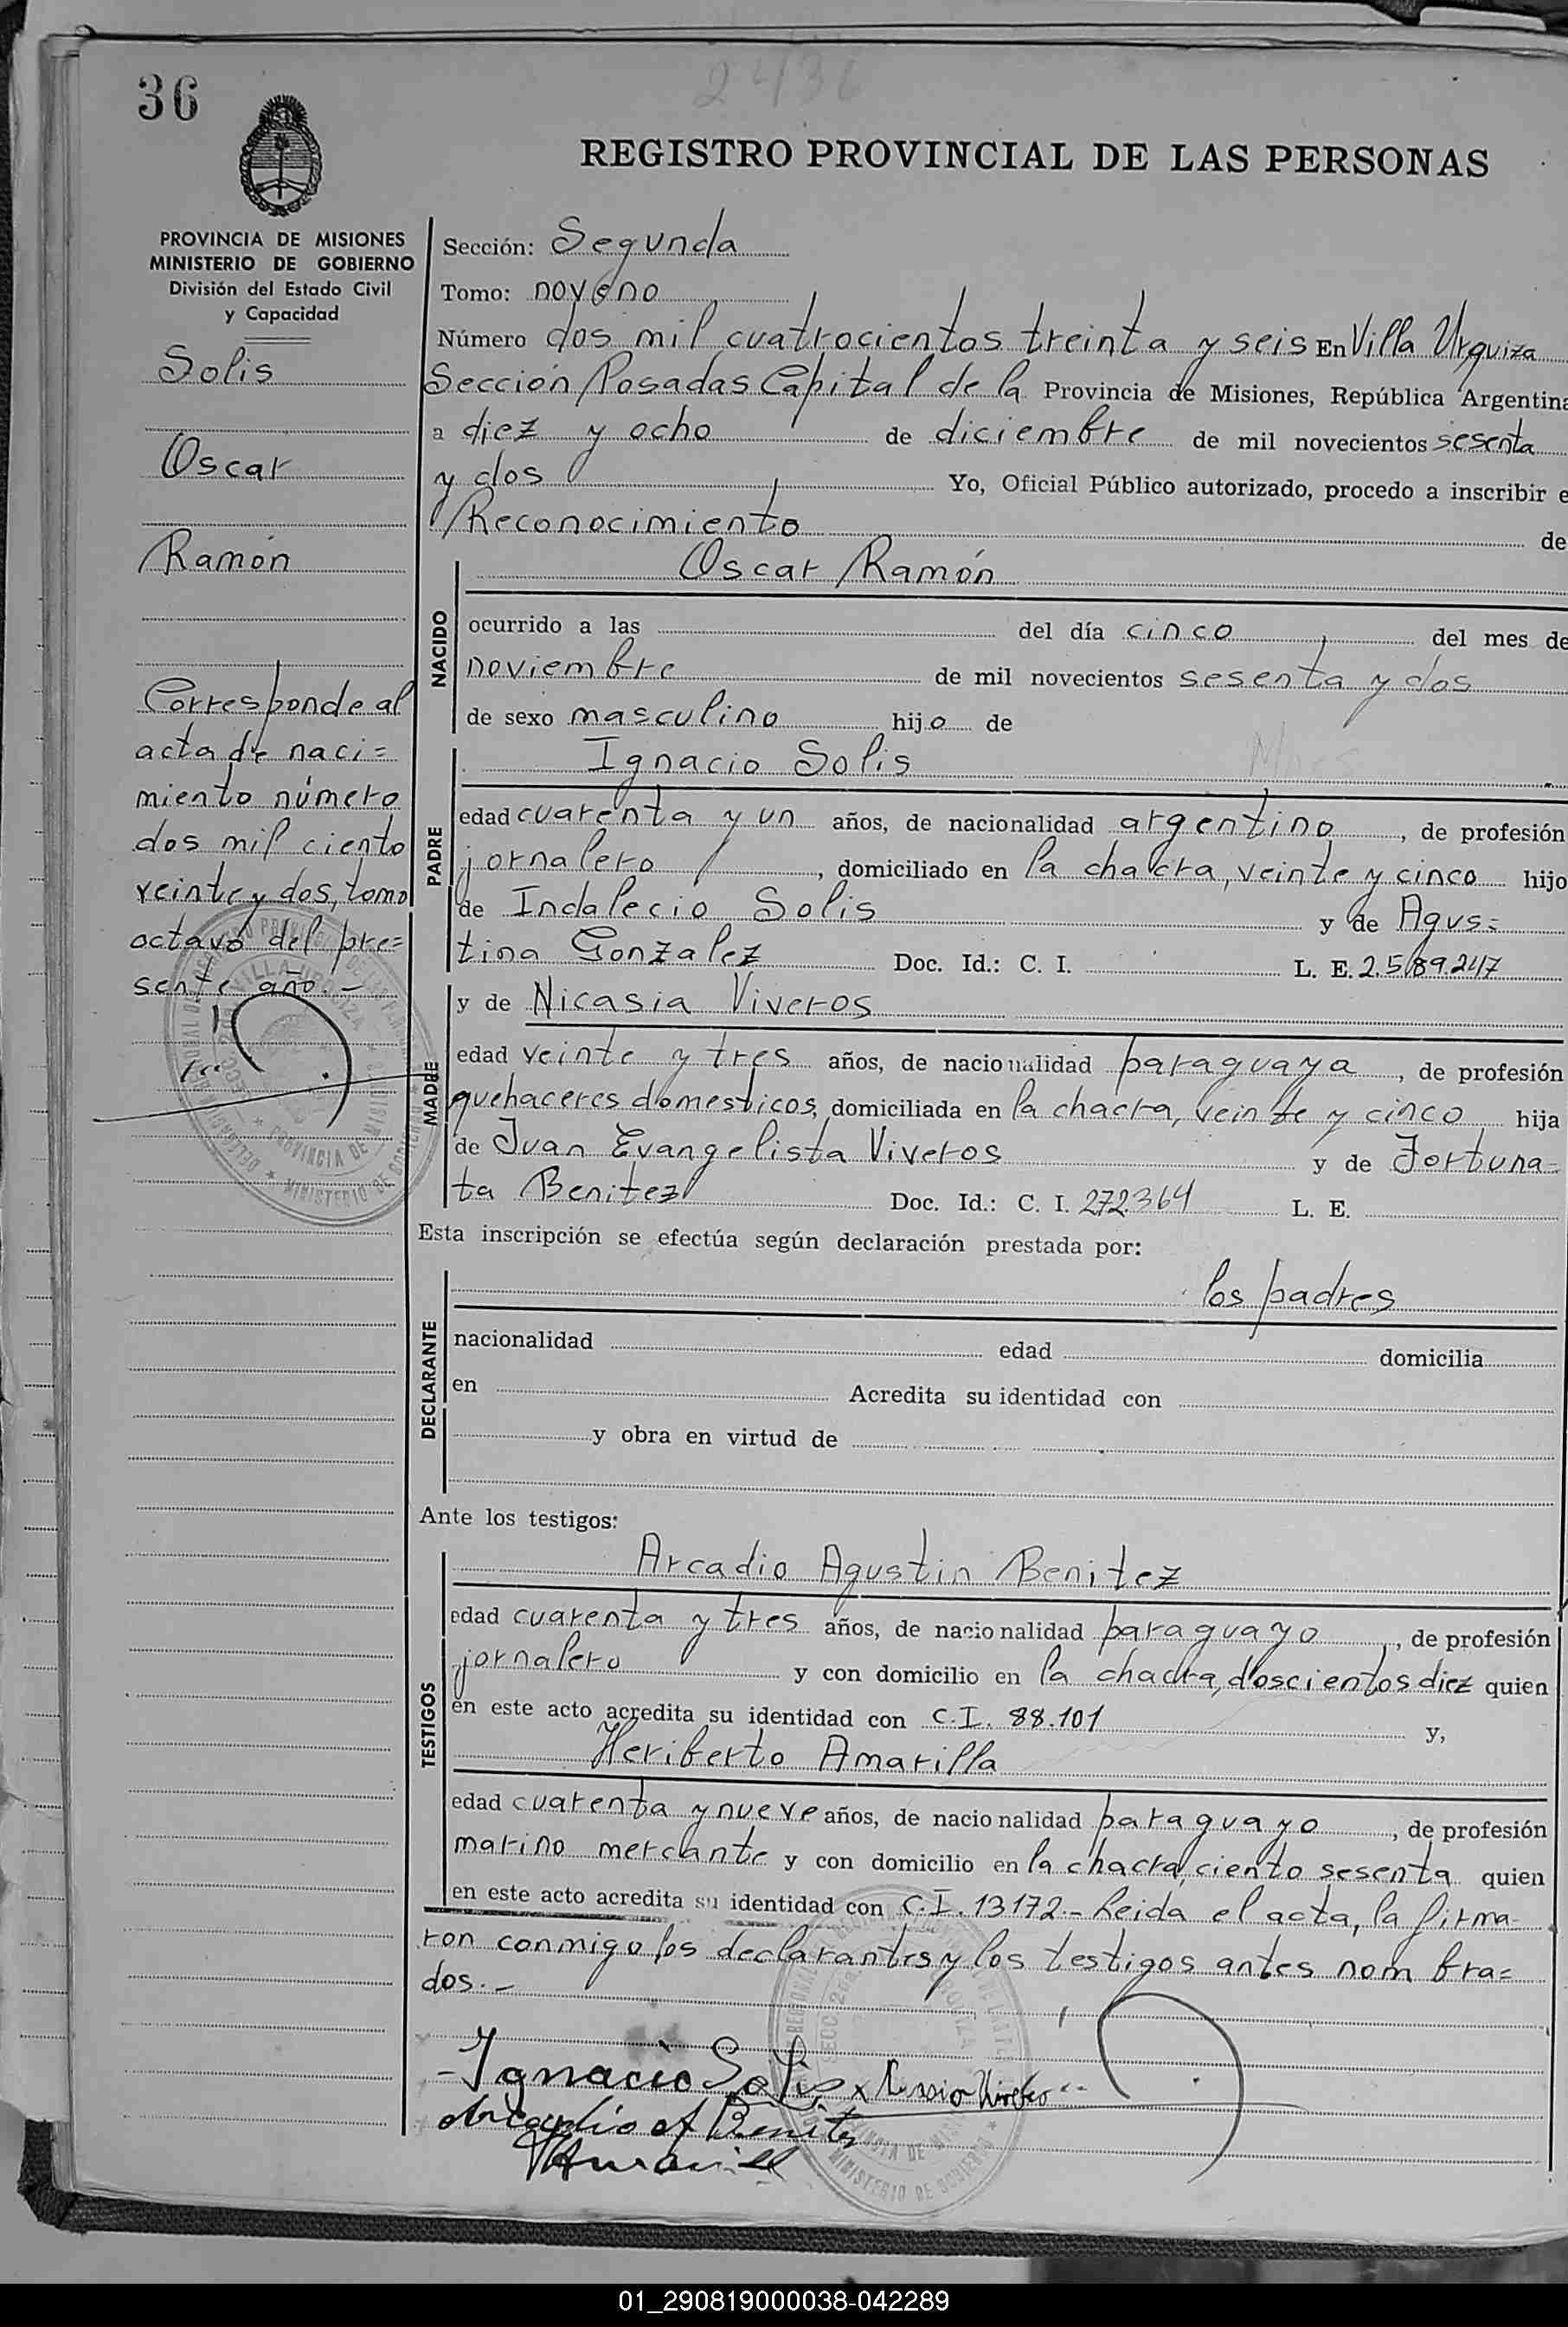 36
2436
REGISTRO PROVINCIAL DE LAS PERSONAS
PROVINCIA DE MISIONES
MINISTERIO DE GOBIERNO
División del Estado Civil
y Capacidad
Solis
Oscar
Ramón
Corresponde al
acta de naci=
miento número
dos mil ciento
veinte y dos, tomo
octavo del pre=
sente año.-
Sección: Segunda
Tomo: noveno
Número dos mil cuatrocientos treinta y seis En Villa Urquiza
Sección Posadas Capital de la Provincia de Misiones, República Argentina
a diez y ocho de diciembre de mil novecientos sesenta
y dos Yo, Oficial Público autorizado, procedo a inscribir e
Reconocimiento de
NACIDO
Oscar Ramón
ocurrido a las del día cinco del mes de
noviembre de mil novecientos sesenta y dos
de sexo masculino hijo de
PADRE
Ignacio Solis
edad cuarenta y un años, de nacionalidad argentino, de profesión
jornalero, domiciliado en la chacra, veinte y cinco hijo
de Indalecio Solis y de Agus=
tina Gonzalez Doc. Id.: C. I. L. E. 2.589.247
MADRE
y de Nicasia Viveros
edad veinte y tres años, de nacionalidad paraguaya, de profesión
quehaceres domesticos, domiciliada en la chacra, veinte y cinco hija
de Juan Evangelista Viveros y de Fortuna=
ta Benitez Doc. Id.: C. I. 272.364 L. E.
Esta inscripción se efectúa según declaración prestada por:
DECLARANTE
los padres
nacionalidad edad domicilia
en Acredita su identidad con
y obra en virtud de
Ante los testigos:
TESTIGOS
Arcadio Agustin Benitez
edad cuarenta y tres años, de nacionalidad paraguayo, de profesión
jornalero y con domicilio en la chacra, doscientos diez quien
en este acto acredita su identidad con C.I. 88.101 y,
Heriberto Amarilla
edad cuarenta y nueve años, de nacionalidad paraguayo, de profesión
marino mercante y con domicilio en la chacra, ciento sesenta quien
en este acto acredita su identidad con C.I. 13172.- Leida el acta, la firma-
ron conmigo los declarantes y los testigos antes nombra=
dos.-
Ignacio Solis
Arcadio A Benitez
01_290819000038-042289